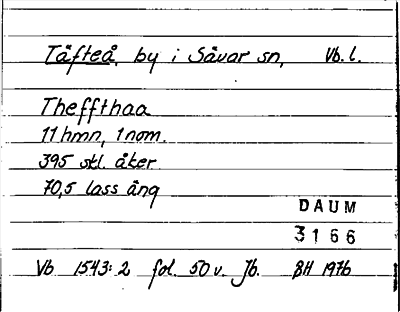 Täfteå, by i Sävar sn, Vb.l.
Theffthaa
11 hmn, 1 nom.
395 skl. åker
70,5 lass äng
DAUM
3166
Vb 1543:2 fol. 50 v. Jb. BH 1976